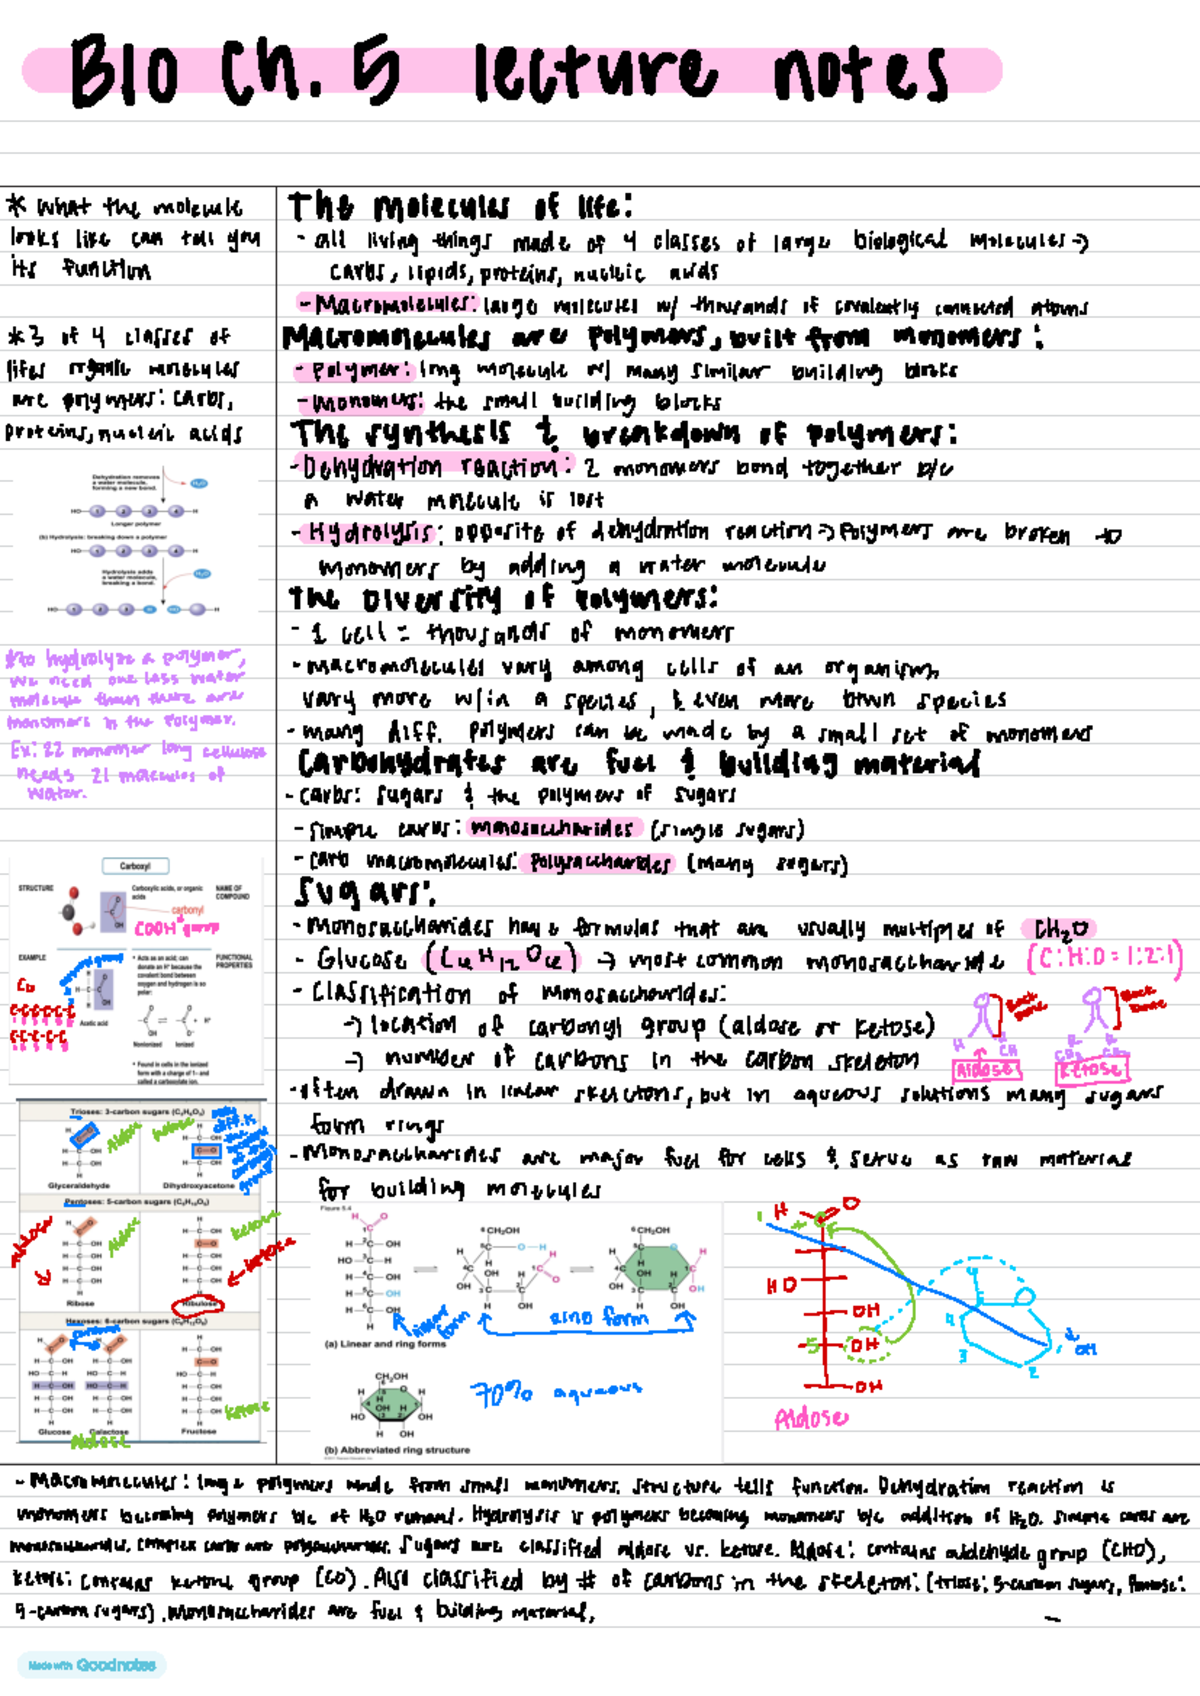 BIO Ch. 5 lecture notes
* What the molecule
looks like can tell you
its function
*3 of 4 classes of
lifes organic molecules
are polymers: carbs,
proteins, nucleic acids
Dehydration removes
a water molecule,
forming a new bond.
H₂O
HO 1 2 3 4 H
Longer polymer
(b) Hydrolysis: breaking down a polymer
HO 1 2 3 4 H
Hydrolysis adds
a water molecule,
breaking a bond.
H₂O
HO 1 2 3 H HO H
*to hydrolyze a polymer,
we need one less water
molecule than there are
monomers in the polymer.
Ex: 22 monomer long cellulose
needs 21 molecules of
water.
Carboxyl
STRUCTURE
Carboxylic acids, or organic
acids
NAME OF
COMPOUND
carbonyl
COOH group
EXAMPLE
• Acts as an acid; can
donate an H⁺ because the
covalent bond between
oxygen and hydrogen is so
polar:
FUNCTIONAL
PROPERTIES
Acetic acid
Nonionized Ionized
• Found in cells in the ionized
form with a charge of 1– and
called a carboxylate ion.
Trioses: 3-carbon sugars (C₃H₆O₃)
Aldose
ketose
Glyceraldehyde Dihydroxyacetone
Pentoses: 5-carbon sugars (C₅H₁₀O₅)
Aldose
ketose
ketose
Ribose Ribulose
Hexoses: 6-carbon sugars (C₆H₁₂O₆)
ketose
Glucose Galactose Fructose
Aldose
The molecules of life:
- all living things made of 4 classes of large biological molecules→
carbs, lipids, proteins, nucleic acids
- Macromolecules: large molecules w/ thousands of covalently connected atoms
Macromolecules are polymers, built from monomers:
- Polymer: long molecule w/ many similar building blocks
- Monomers: the small building blocks
The synthesis & breakdown of polymers:
- Dehydration reaction: 2 monomers bond together b/c
a water molecule is lost
- Hydrolysis: opposite of dehydration reaction → Polymers are broken to
monomers by adding a water molecule
The Diversity of Polymers:
- 1 cell = thousands of monomers
- macromolecules vary among cells of an organism,
vary more w/in a species, & even more btwn species
- many diff. polymers can be made by a small set of monomers
Carbohydrates are fuel & building material
- carbs: sugars & the polymers of sugars
- simple carbs: monosaccharides (single sugars)
- carb macromolecules: Polysaccharides (many sugars)
Sugars:
- Monosaccharides have formulas that are usually multiples of CH₂O
- Glucose (C₆H₁₂O₆) → most common monosaccharide (C:H:O = 1:2:1)
- Classification of Monosaccharides:
→ location of carbonyl group (aldose or ketose)
→ number of carbons in the carbon skeleton
Aldose Ketose
- often drawn in linear skeletons, but in aqueous solutions many sugars
form rings
- Monosaccharides are major fuel for cells & serve as raw material
for building molecules
Figure 5.4
linear form
ring form
(a) Linear and ring forms
70% aqueous
(b) Abbreviated ring structure
H O
HO
OH
5 OH
OH
Aldose
- Macromolecules: large polymers made from small monomers. Structure tells function. Dehydration reaction is
monomers becoming polymers b/c of H₂O removal. Hydrolysis is polymers becoming monomers b/c addition of H₂O. Simple carbs are
monosaccharides, complex carbs are polysaccharides. Sugars are classified aldose vs. ketose. Aldose: contains aldehyde group (CHO),
ketose: contains ketone group (CO). Also classified by # of carbons in the skeleton: (triose: 3-carbon sugars, Pentose:
5-carbon sugars). Monosaccharides are fuel & building material,
Made with Goodnotes